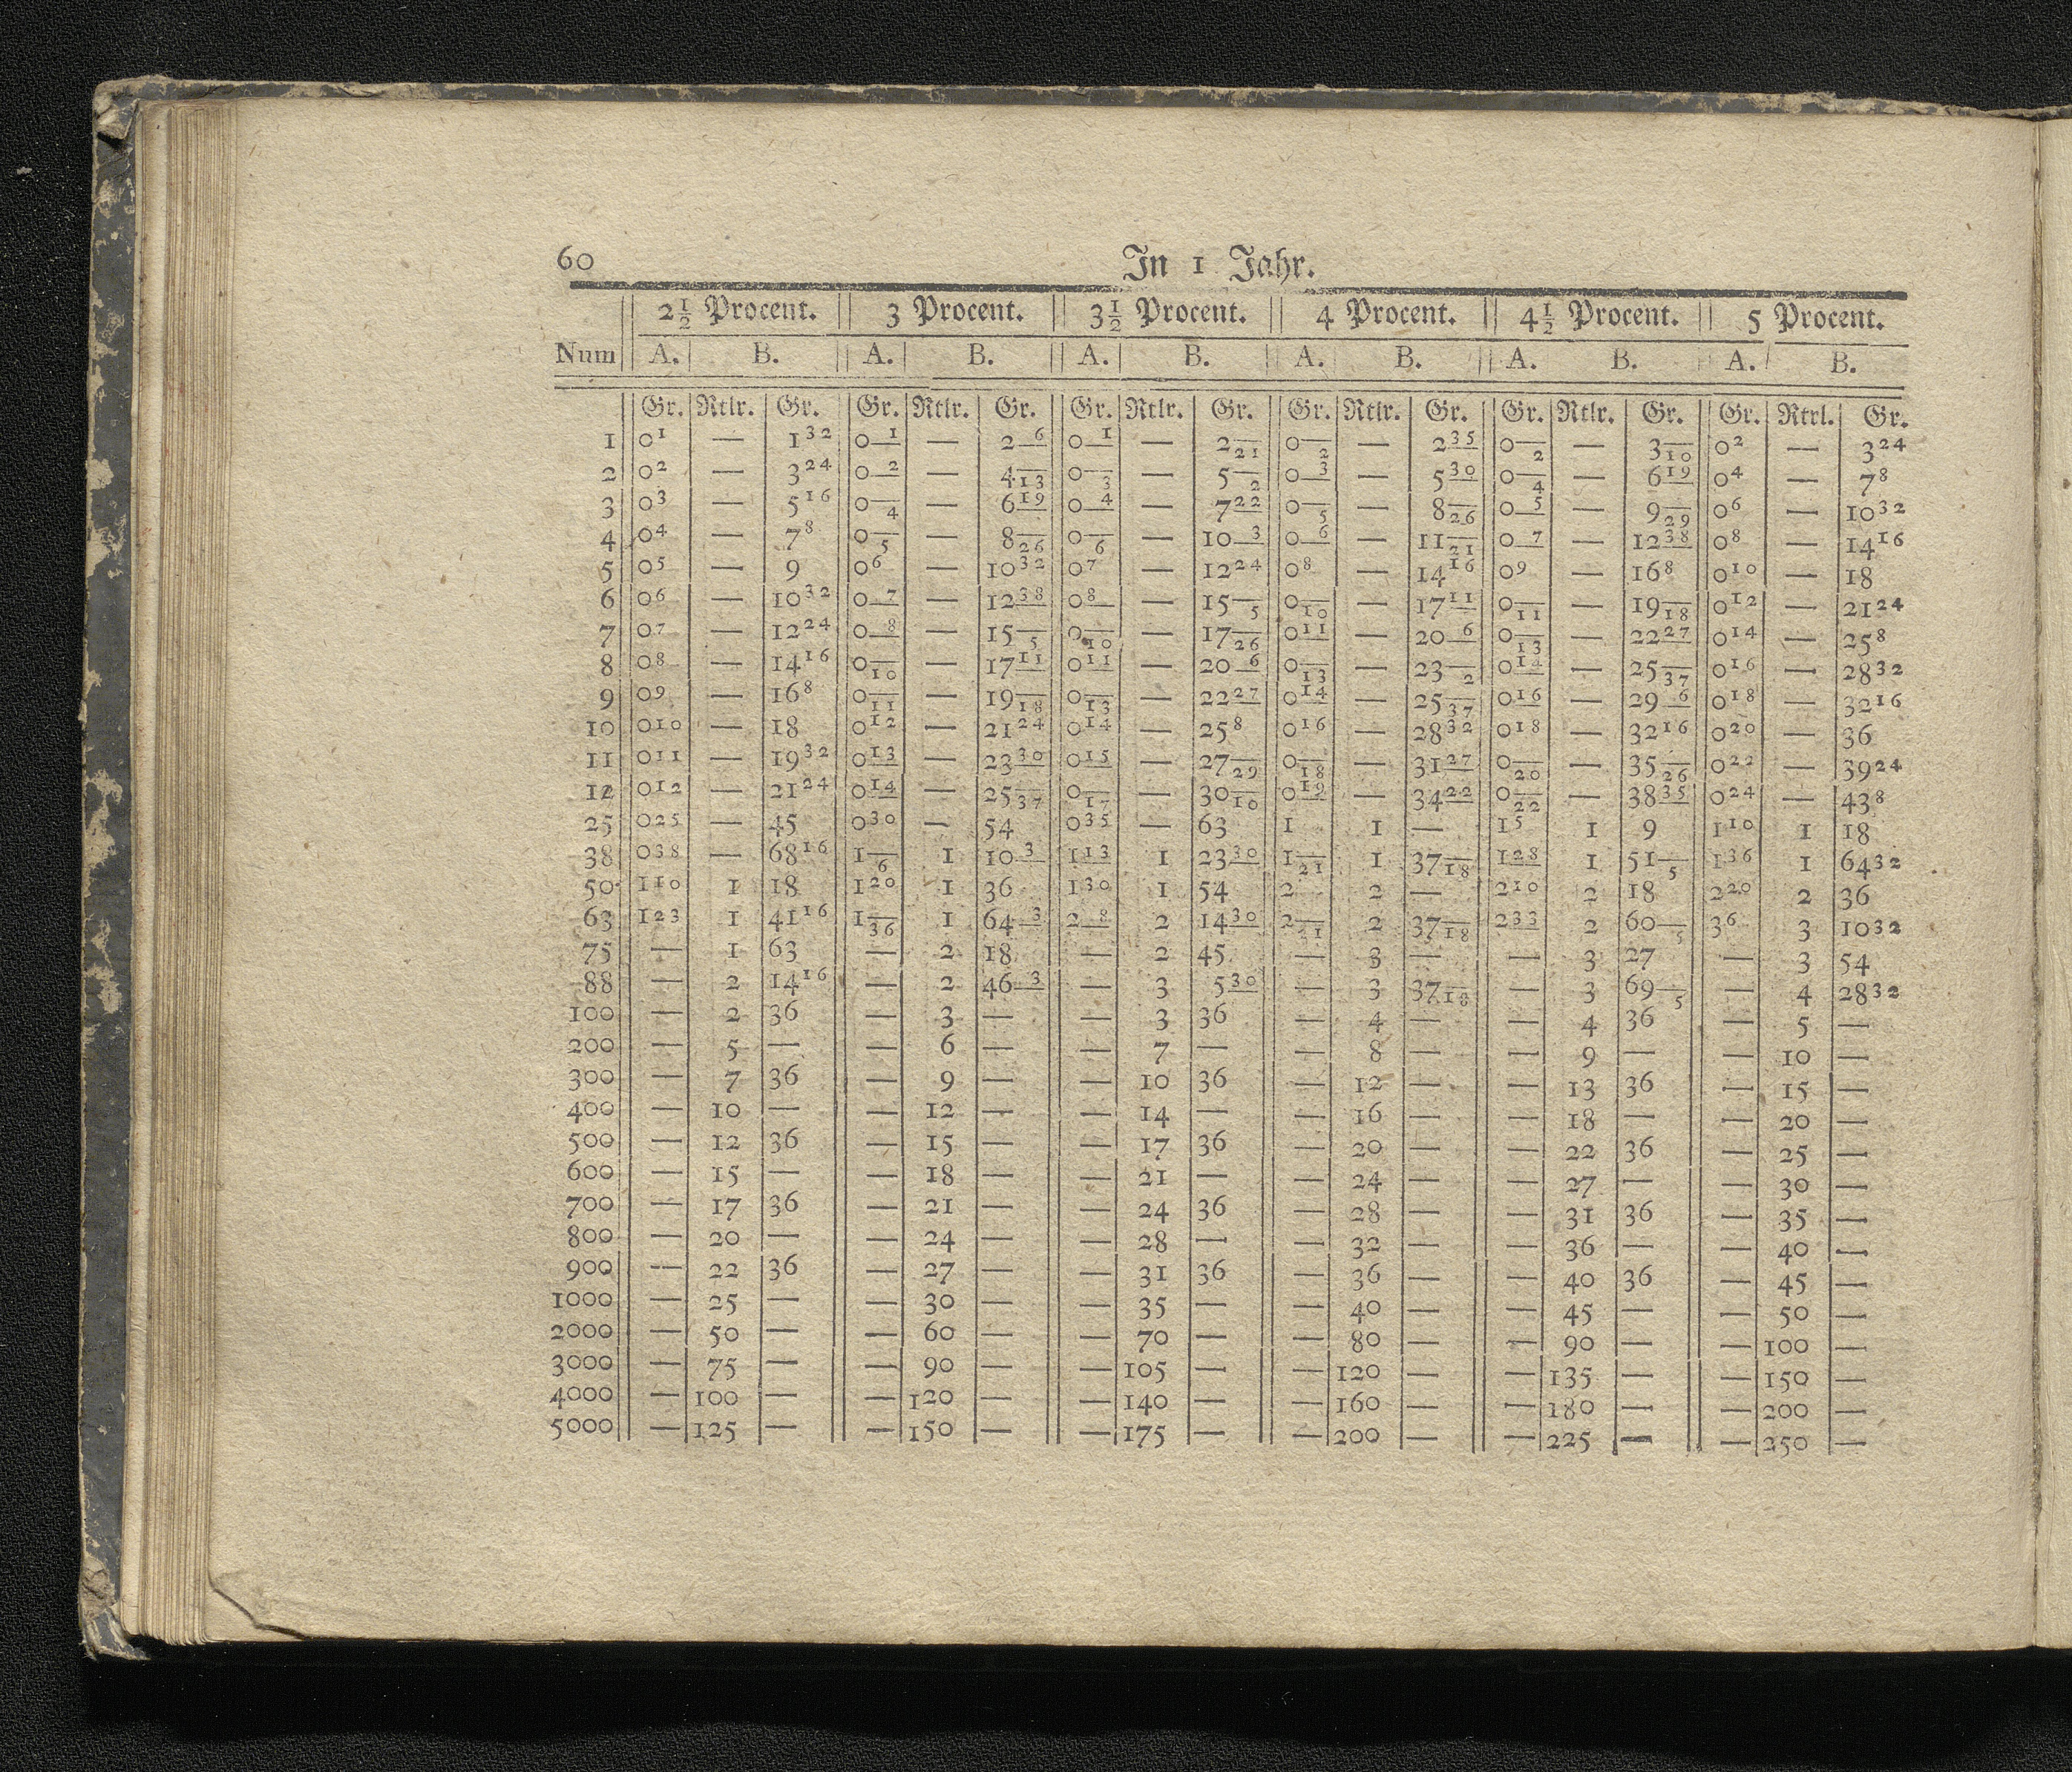 60 In 1 Jahr.
2½ Procent. 3 Procent. 3½ Procent. 4 Procent. 4½ Procent. 5 Procent.
Num A. B. A. B. A. B. A. B. A. B. A. B.
Gr. Rtlr. Gr. Gr. Rtlr. Gr. Gr. Rtlr. Gr. Gr. Rtlr. Gr. Gr. Rtlr. Gr. Gr. Rtrl. Gr.
1 0 1 — 1 32 0 1 — 2 6 0 1 — 2 21 0 2 — 2 35 0 2 — 3 10 0 2 — 3 24
2 0 2 — 3 24 0 2 — 4 13 0 3 — 5 2 0 3 — 5 30 0 4 — 6 19 0 4 — 7 8
3 0 3 — 5 16 0 4 — 6 19 0 4 — 7 22 0 5 — 8 26 0 5 — 9 29 0 6 — 10 32
4 0 4 — 7 8 0 5 — 8 26 0 6 — 10 3 0 6 — 11 21 0 7 — 12 38 0 8 — 14 16
5 0 5 — 9 0 6 — 10 32 0 7 — 12 24 0 8 — 14 16 0 9 — 16 8 0 10 — 18
6 0 6 — 10 32 0 7 — 12 38 0 8 — 15 5 0 10 — 17 11 0 11 — 19 18 0 12 — 21 24
7 0 7 — 12 24 0 8 — 15 5 0 10 — 17 26 0 11 — 20 6 0 13 — 22 27 0 14 — 25 8
8 0 8 — 14 16 0 10 — 17 11 0 11 — 20 6 0 13 — 23 2 0 14 — 25 37 0 16 — 28 32
9 0 9 — 16 8 0 11 — 19 18 0 13 — 22 27 0 14 — 25 37 0 16 — 29 6 0 18 — 32 16
10 0 10 — 18 0 12 — 21 24 0 14 — 25 8 0 16 — 28 32 0 18 — 32 16 0 20 — 36
11 0 11 — 19 32 0 13 — 23 30 0 15 — 27 29 0 18 — 31 27 0 20 — 35 26 0 22 — 39 24
12 0 12 — 21 24 0 14 — 25 37 0 17 — 30 10 0 19 — 34 22 0 22 — 38 35 0 24 — 43 8
25 0 25 — 45 0 30 — 54 0 35 — 63 1 1 — 1 5 1 9 1 10 1 18
38 0 38 — 68 16 1 6 1 10 3 1 13 1 23 30 1 21 1 37 18 1 28 1 51 5 1 36 1 64 32
50 1 10 1 18 1 20 1 36 1 30 1 54 2 2 — 2 10 2 18 2 20 2 36
63 1 23 1 41 16 1 36 1 64 3 2 8 2 14 30 2 21 2 37 18 2 33 2 60 5 3 6 3 10 32
75 — 1 63 — 2 18 — 2 45 — 3 — — 3 27 — 3 54
88 — 2 14 16 — 2 46 3 — 3 5 30 — 3 37 18 — 3 69 5 — 4 28 32
100 — 2 36 — 3 — — 3 36 — 4 — — 4 36 — 5 —
200 — 5 — — 6 — — 7 — — 8 — — 9 — — 10 —
300 — 7 36 — 9 — — 10 36 — 12 — — 13 36 — 15 —
400 — 10 — — 12 — — 14 — — 16 — — 18 — — 20 —
500 — 12 36 — 15 — — 17 36 — 20 — — 22 36 — 25 —
600 — 15 — — 18 — — 21 — — 24 — — 27 — — 30 —
700 — 17 36 — 21 — — 24 36 — 28 — — 31 36 — 35 —
800 — 20 — — 24 — — 28 — — 32 — — 36 — — 40 —
900 — 22 36 — 27 — — 31 36 — 36 — — 40 36 — 45 —
1000 — 25 — — 30 — — 35 — — 40 — — 45 — — 50 —
2000 — 50 — — 60 — — 70 — — 80 — — 90 — — 100 —
3000 — 75 — — 90 — — 105 — — 120 — — 135 — — 150 —
4000 — 100 — — 120 — — 140 — — 160 — — 180 — — 200 —
5000 — 125 — — 150 — — 175 — — 200 — — 225 — — 250 —